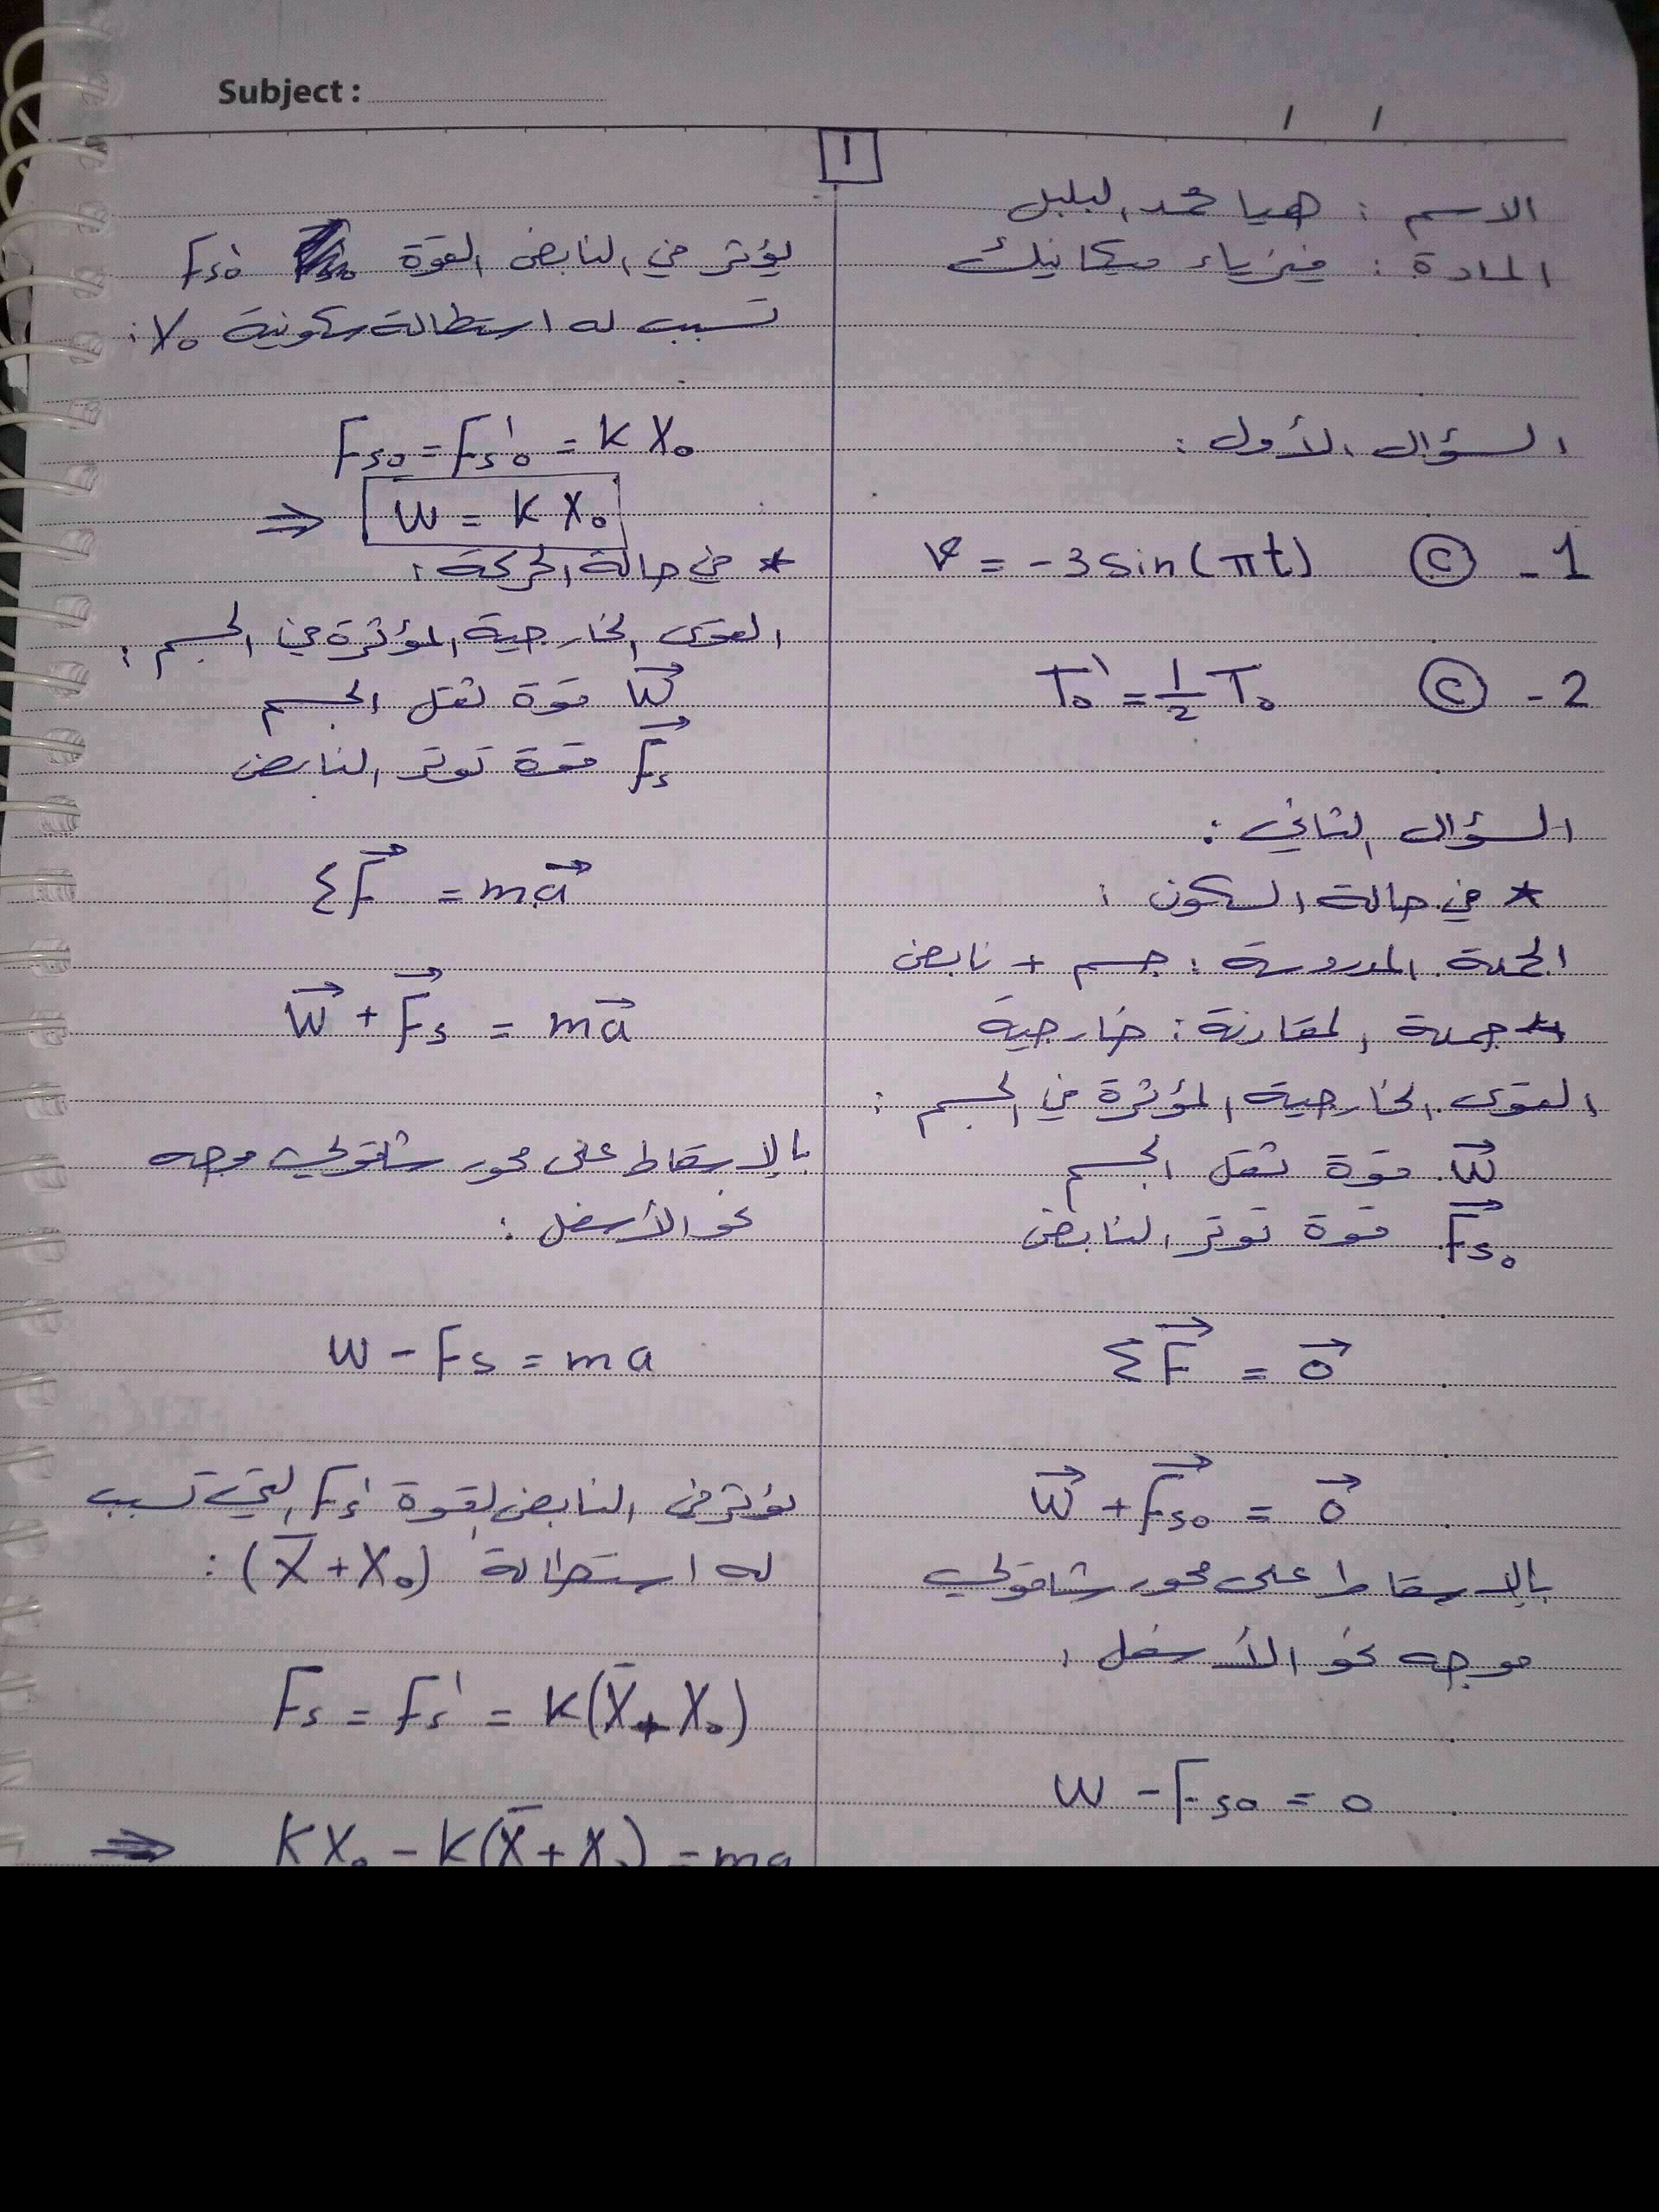 Subject :
/ /
1
الاسم : هيا محمد البلبل
المادة : فيزياء ميكانيك
السؤال الأول :
1 - C v = -3 sin(πt)
2 - C T₀' = 1/2 T₀
السؤال الثاني :
* في حالة السكون :
الجملة المدروسة : جسم + نابض
جملة المقارنة : خارجية
القوى الخارجية المؤثرة في الجسم :
W⃗ قوة ثقل الجسم
F⃗s₀ قوة توتر النابض
ΣF⃗ = 0⃗
W⃗ + F⃗s₀ = 0⃗
بالإسقاط على محور شاقولي
موجه نحو الأسفل :
W - Fs₀ = 0
يؤثر في النابض القوة Fs₀'
تسبب له استطالة سكونية X₀ :
Fs₀ = Fs₀' = K X₀
⇒ W = K X₀
* في حالة الحركة :
القوى الخارجية المؤثرة في الجسم :
W⃗ قوة ثقل الجسم
F⃗s قوة توتر النابض
ΣF⃗ = ma⃗
W⃗ + F⃗s = ma⃗
بالإسقاط على محور شاقولي موجه
نحو الأسفل :
W - Fs = ma
يؤثر في النابض القوة Fs' التي تسبب
له استطالة (X̄ + X₀) :
Fs = Fs' = K(X̄ + X₀)
⇒ KX₀ - K(X̄ + X₀) = ma